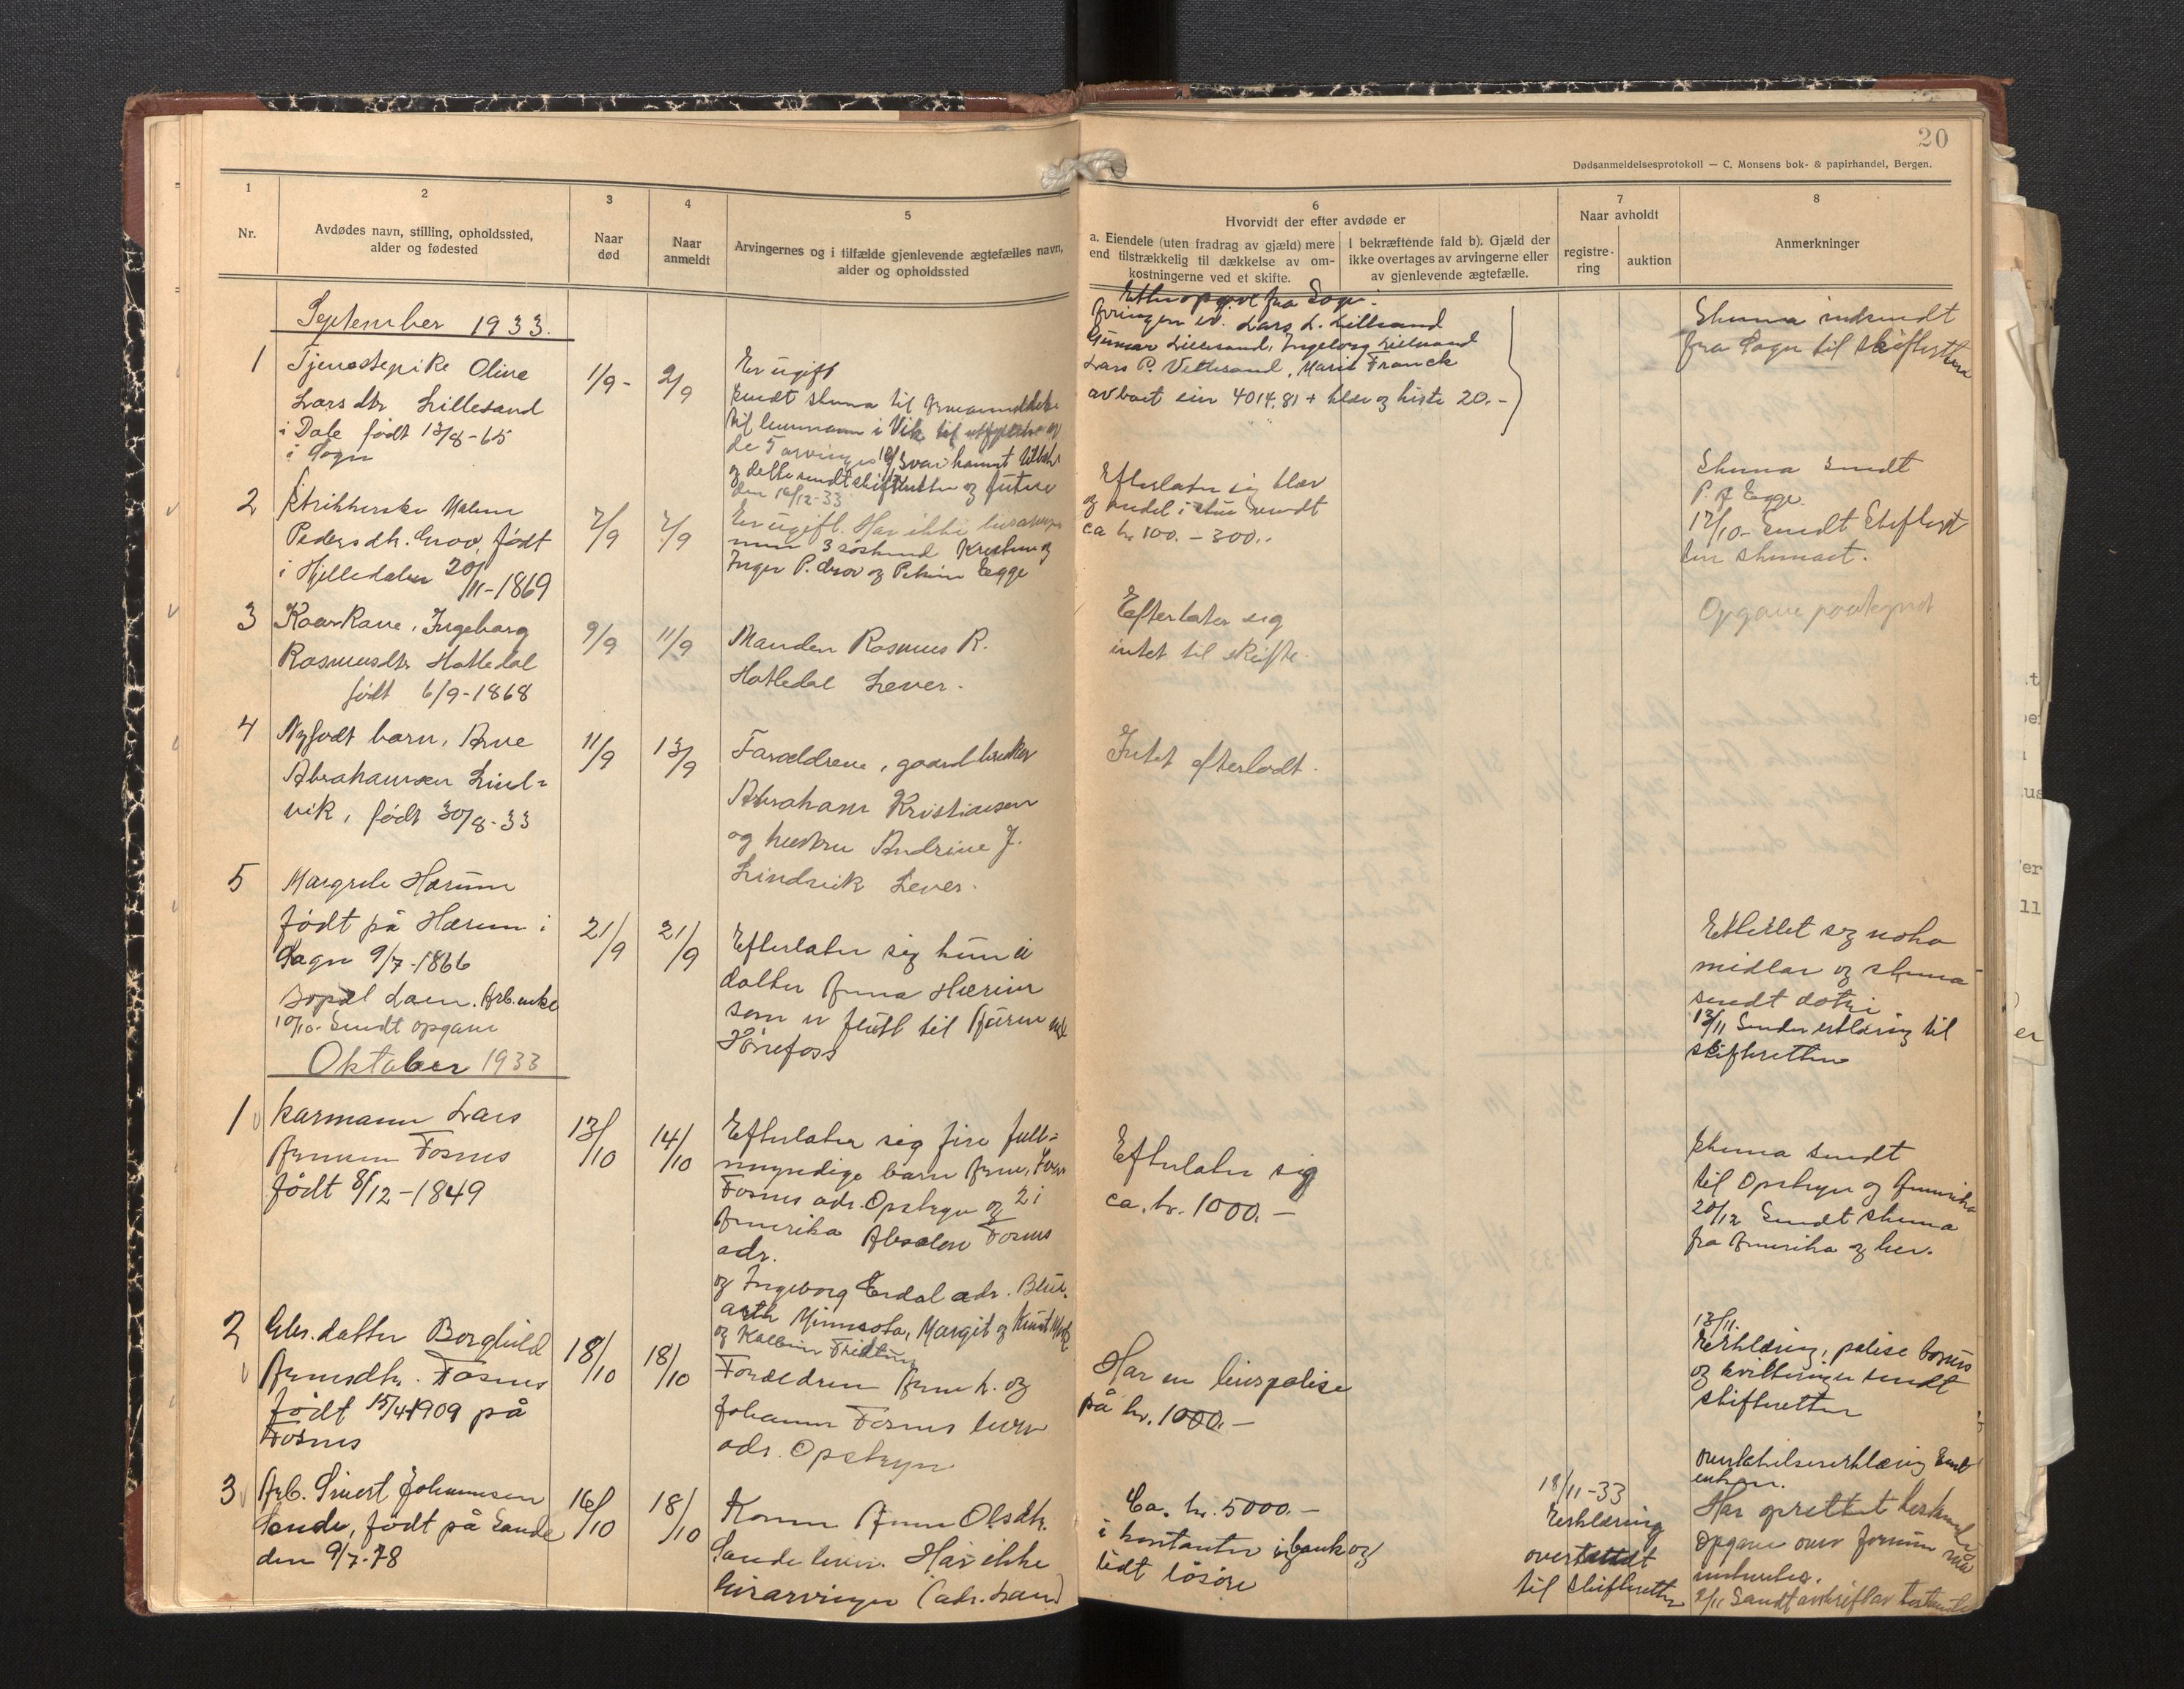 20
Dødsanmeldelsesprotokoll — C. Monsens bok- & papirhandel, Bergen.
1
Nr.
2
Avdødes navn, stilling, opholdssted,
alder og fødested
3
Naar
død
4
Naar
anmeldt
5
Arvingernes og i tilfælde gjenlevende ægtefælles navn,
alder og opholdssted
6
Hvorvidt der efter avdøde er
a. Eiendele (uten fradrag av gjæld) mere
end tilstrækkelig til dækkelse av om-
kostningerne ved et skifte.
I bekræftende fald b). Gjæld der
ikke overtages av arvingerne eller
av gjenlevende ægtefælle.
7
Naar avholdt
registre-
ring
auktion
8
Anmerkninger
September 1933.
1
Tjenestepike Oline
Lars dtr Lillesand
i Dale født 13/8-65
i Sogn
1/9-
2/9
Er ugift
sendt skema til
til lensmann i Vik til
de 5 arvinger
den 16/12-33
Efter opgave fra Sogn.
Arvingen er. Lars L. Lillesand
Gunnar Lillesand, Ingeborg Lillesand
Lars P. Vettesand, Marie Franck
avbart ein 4014,81 + klær og kiste 20.-
Skema indsendt
fra Sogn til skifteretten
2
Strikkerske Malene
Pedersdtr. Grov, født
i Hjelledalen 20/11-1869
7/9
7/9
Er ugift. Har ikke livsarvinger
men 3 søskend Kristine og
Inger P. Grov og Petrine Egge
Efterlater sig klær
og andel i stue verdt
ca kr 100.- 300..
Skema sendt
P. A Egge.
17/10- Sendt Skifteret
ten skemaet.
3
Kaarkone, Ingeborg
Rasmusdtr Hatledal
født 6/9-1868
9/9
11/9
Manden Rasmus R.
Hatledal Lever.
Efterlater sig
intet til skifte.
Opgave
4
Nyfødt barn, Arne
Abrahamsen Lind=
vik, født 30/8-33
11/9
13/9
Forældrene, gaardbruker
Abraham Kristiansen
og hustru Andrine J.
Lindvik Lever.
Intet efterladt.
5
Margrete Hærum
født på Hærum i
Sogn 9/7-1866
Bopæl Loen. Arb.enke
10/10- Sendt opgave
21/9
21/9
Efterlater sig kun ei
datter Anna Hærum
som er flütt til
Hønefoss
Etterlet seg noko
midlar og skema
sendt dotri
13/11 Sender erklæring til
skifteretten
Oktober 1933
1
Karmann Lars
Arnesen Fosnes
født 8/12-1849
13/10
14/10
Efterlater sig fire full=
myndige barn Arne,
Fosnes adr. Opstryn og 2 i
Amerika Absalon Fosnes
adr.
og Ingeborg Erdal adr. Blue
arth Minnesota, Margit og Knut
og
Efterlater sig
ca. kr. 1000.-
Skema sendt
til Opstryn og Amerika
20/12 Sendt skema
fra Amerika og her.
2
Gbr.datter Borghild
Arnesdtr. Fosnes
født 15/4-1909 på
Fosnes
18/10
18/10
Foreldren Arne L. og
Johanne Fosnes lever
adr. Opstryn
Har en livspolise
på kr. 1000.-
13/11.
Erklæring, polise
og kvitteringer sendt
skifteretten
3
Arb. Sivert Johannesen
Sande, født på Sande
den 9/7-78
16/10
18/10
Konen Anne Olsdtr.
Sande lever. Har ikke
livsarvinger (adr. Loen)
Ca. kr. 5000.-
i kontanter i bank og
lidt løsøre
18/11-33
Erklæring
oversendt
til skifteretten
overtakelseserklæring Sendt
enken.
Har oprettet testament
Opgave over formuen
2/11 Sendt avskrift av testamente